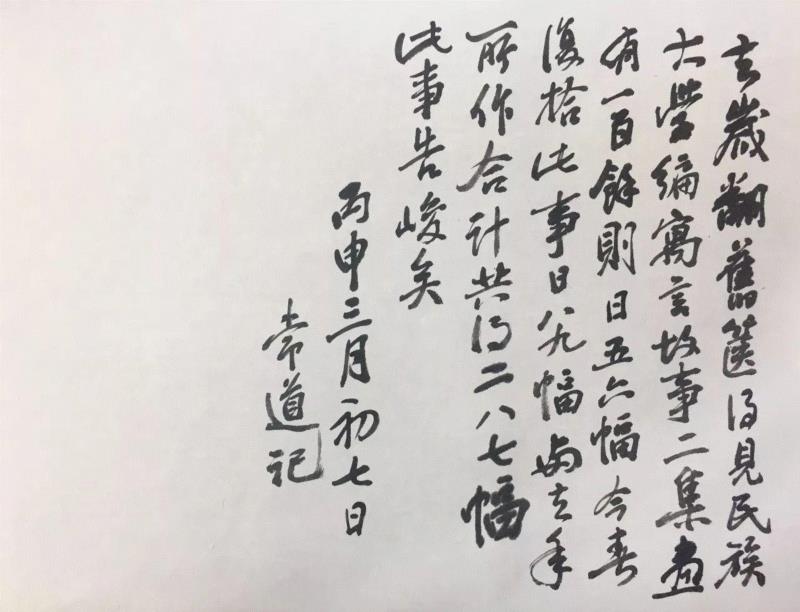 去歲翻舊篋得見民族
大學編寓言故事二集畫
有一百餘則日五六幅今春
復拾此事日八九幅與去年
所作合計共得二八七幅
此事告峻矣
丙申三月初七日
常道記